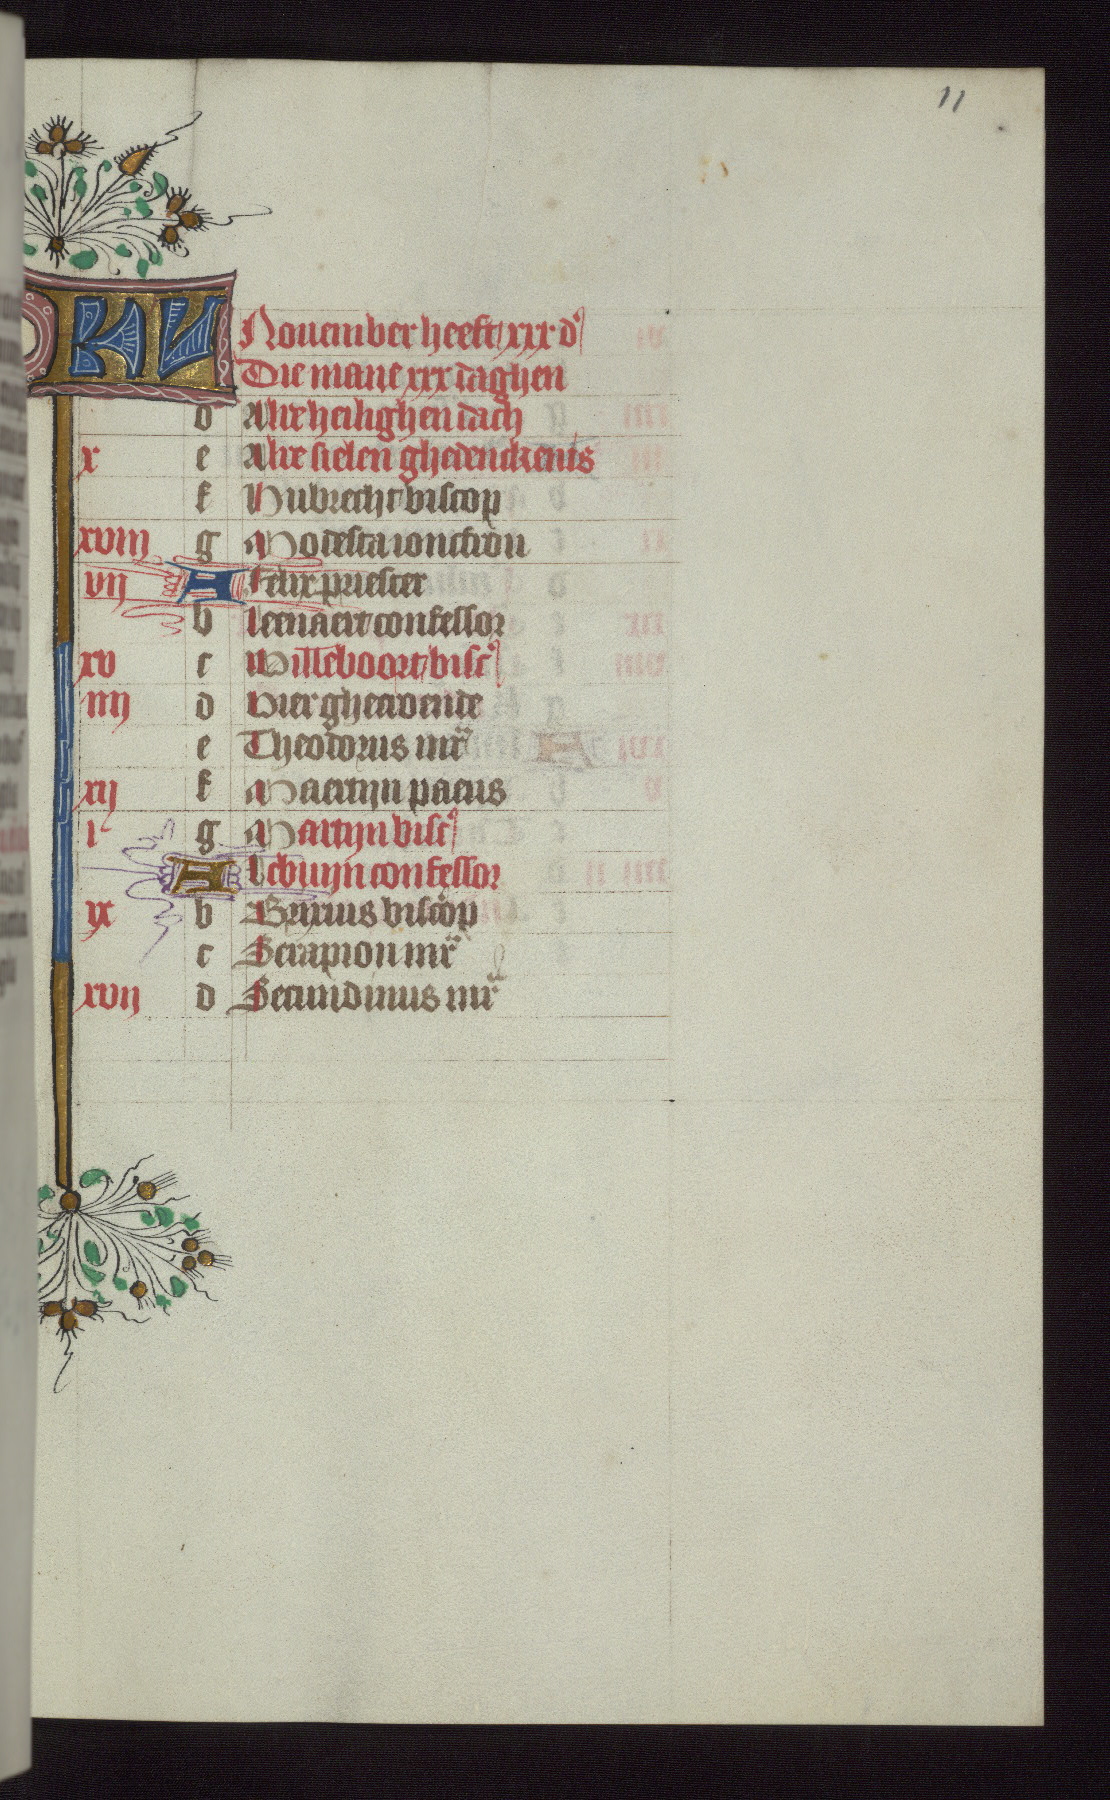 11
KL Nouember heeft xxx d'
Die mane xxx daghen
d Alre heilighen dach
x e Alre sielen ghedenckenis
f Hubrecht biscop
xviij g Modesta ioncfrou
vij A Felix priester
b Leenaert confessor
xv c Willeboort bisc'
iiij d Vier ghecroende
e Theodorus mr
xij f Maertijn paeus
i g Martijn bisc'
A Lebuijn confessor
ix b Brixius biscop
c Serapion mr
xvij d Secundinus mr